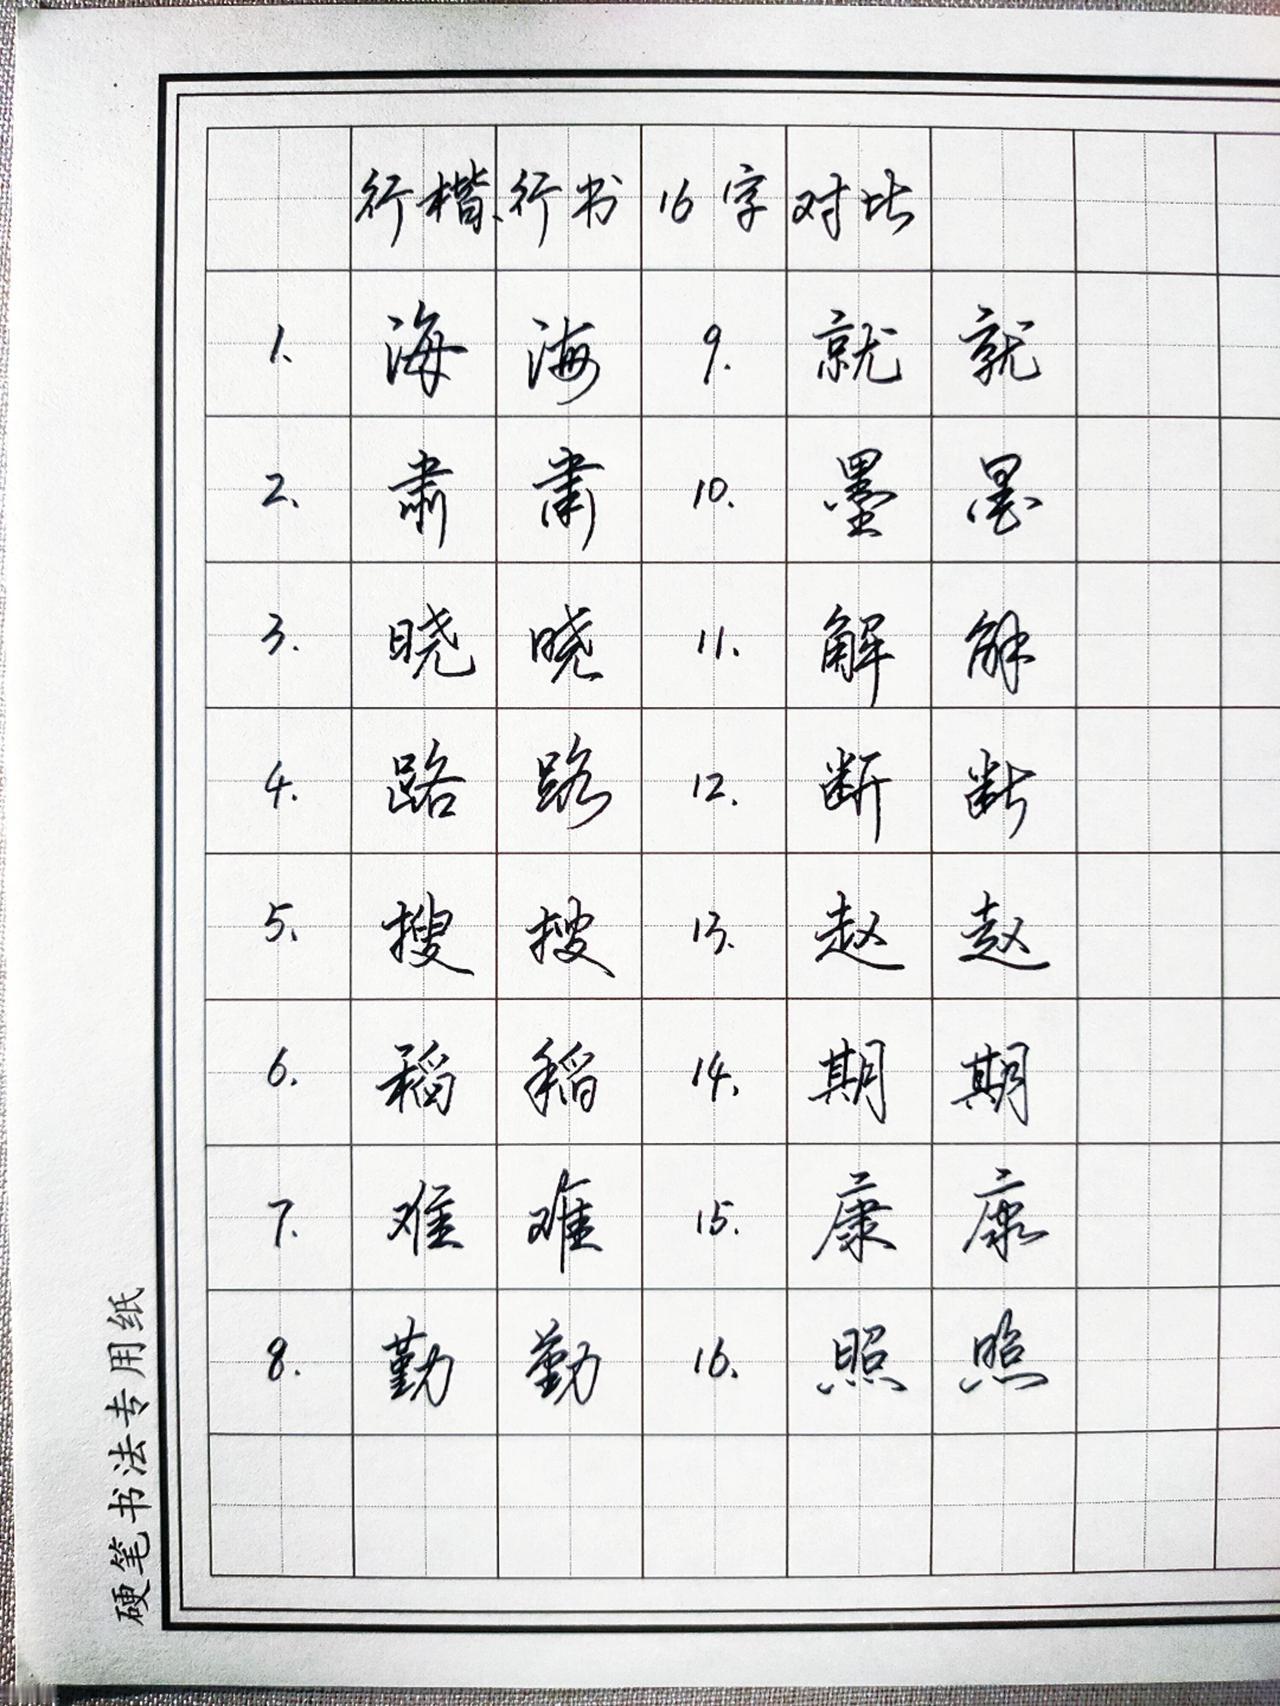 行楷、行书 16 字对比
1. 海 海 9. 就 就
2. 肃 肃 10. 墨 墨
3. 晓 晓 11. 解 解
4. 路 路 12. 断 断
5. 搜 搜 13. 赵 赵
6. 稻 稻 14. 期 期
7. 难 难 15. 康 康
8. 勤 勤 16. 照 照
硬笔书法专用纸